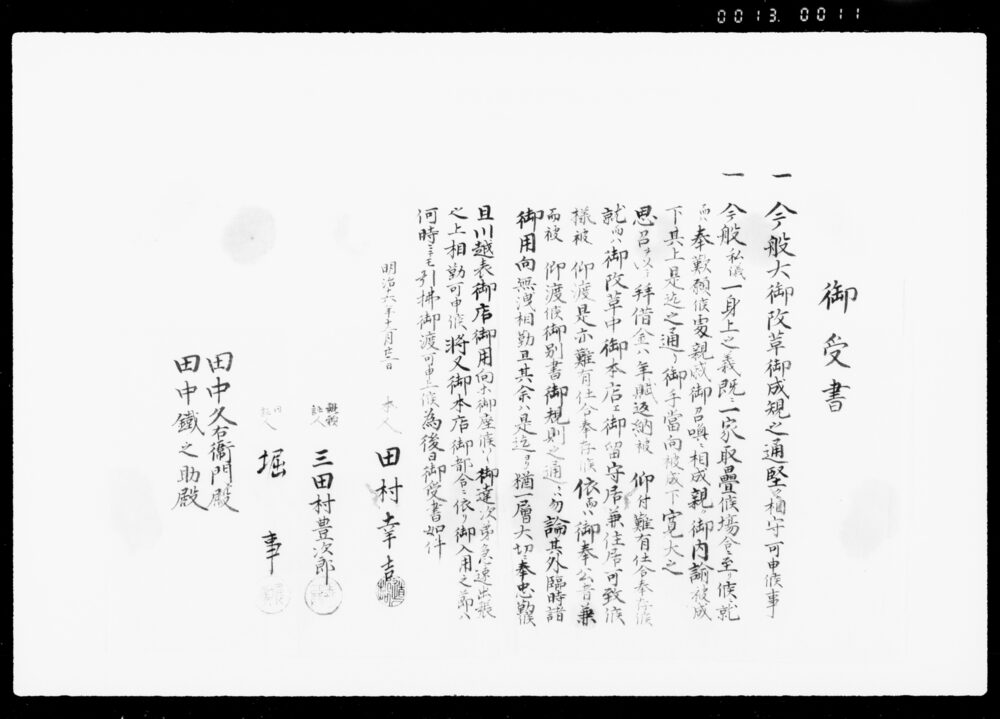 0013. 0011
御受書
一今般大御改革御成規之通堅ク相守可申候事
一今般私儀一身上之義既ニ一家取畳候場合ニ至リ候就
而ハ奉歎願候処親戚御召喚ニ相成親ク御内諭被成
下其上是迄之通リ御手当向被成下寛大之
思召ヲ以テ拝借金ハ年賦返納被 仰付難有仕合奉存候
就而ハ御改革中御本店ニ御留守居兼住居可致候
様被 仰渡是亦難有仕合奉存候依而ハ御奉公旨兼
而被 仰渡候御別書御規則之通ハ勿論其外臨時諸
御用向無洩相勤且其余ハ是迄ヨリ猶一層大切ニ奉忠勤候
且川越表御店御用向も御座候ハヽ御達次第急速出張
之上相勤可申候将又御本店御都合ニ依リ御入用之節ハ
何時ニ而も引払御渡可申上候為後日御受書如件
明治六年十一月 日
本人 田村幸吉
親類証人 三田村豊次郎
同証人 堀 事
田中久右衛門殿
田中鐵之助殿